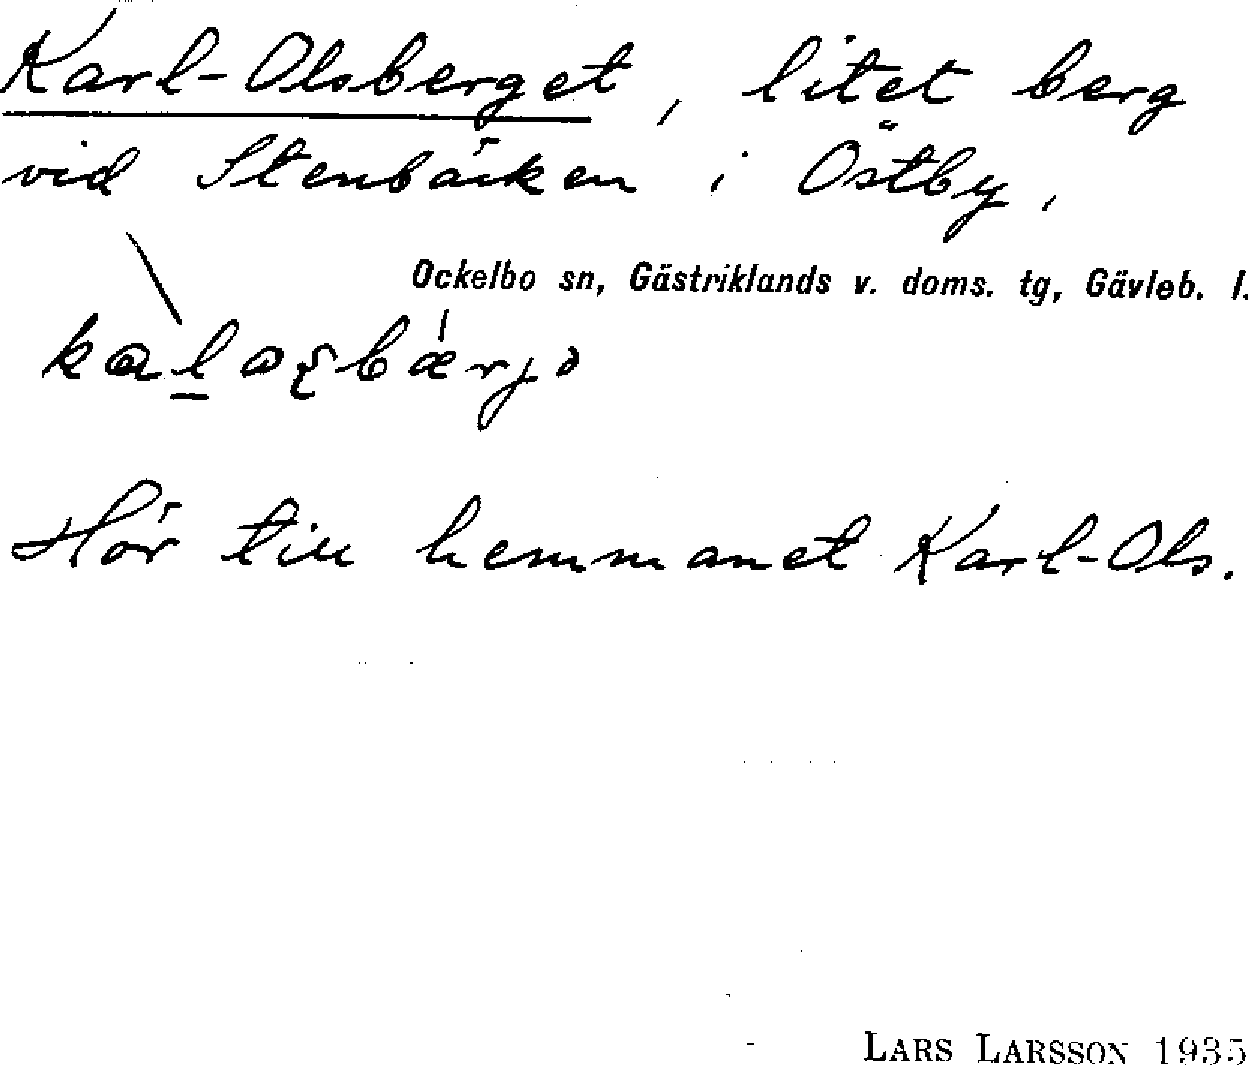 Karl-Olsberget, litet berg
vid Stenbäcken i Östby,
Ockelbo sn, Gästriklands v. doms. tg, Gävleb. l.
Hör till hemmanet Karl-Ols.
LARS LARSSON 1935